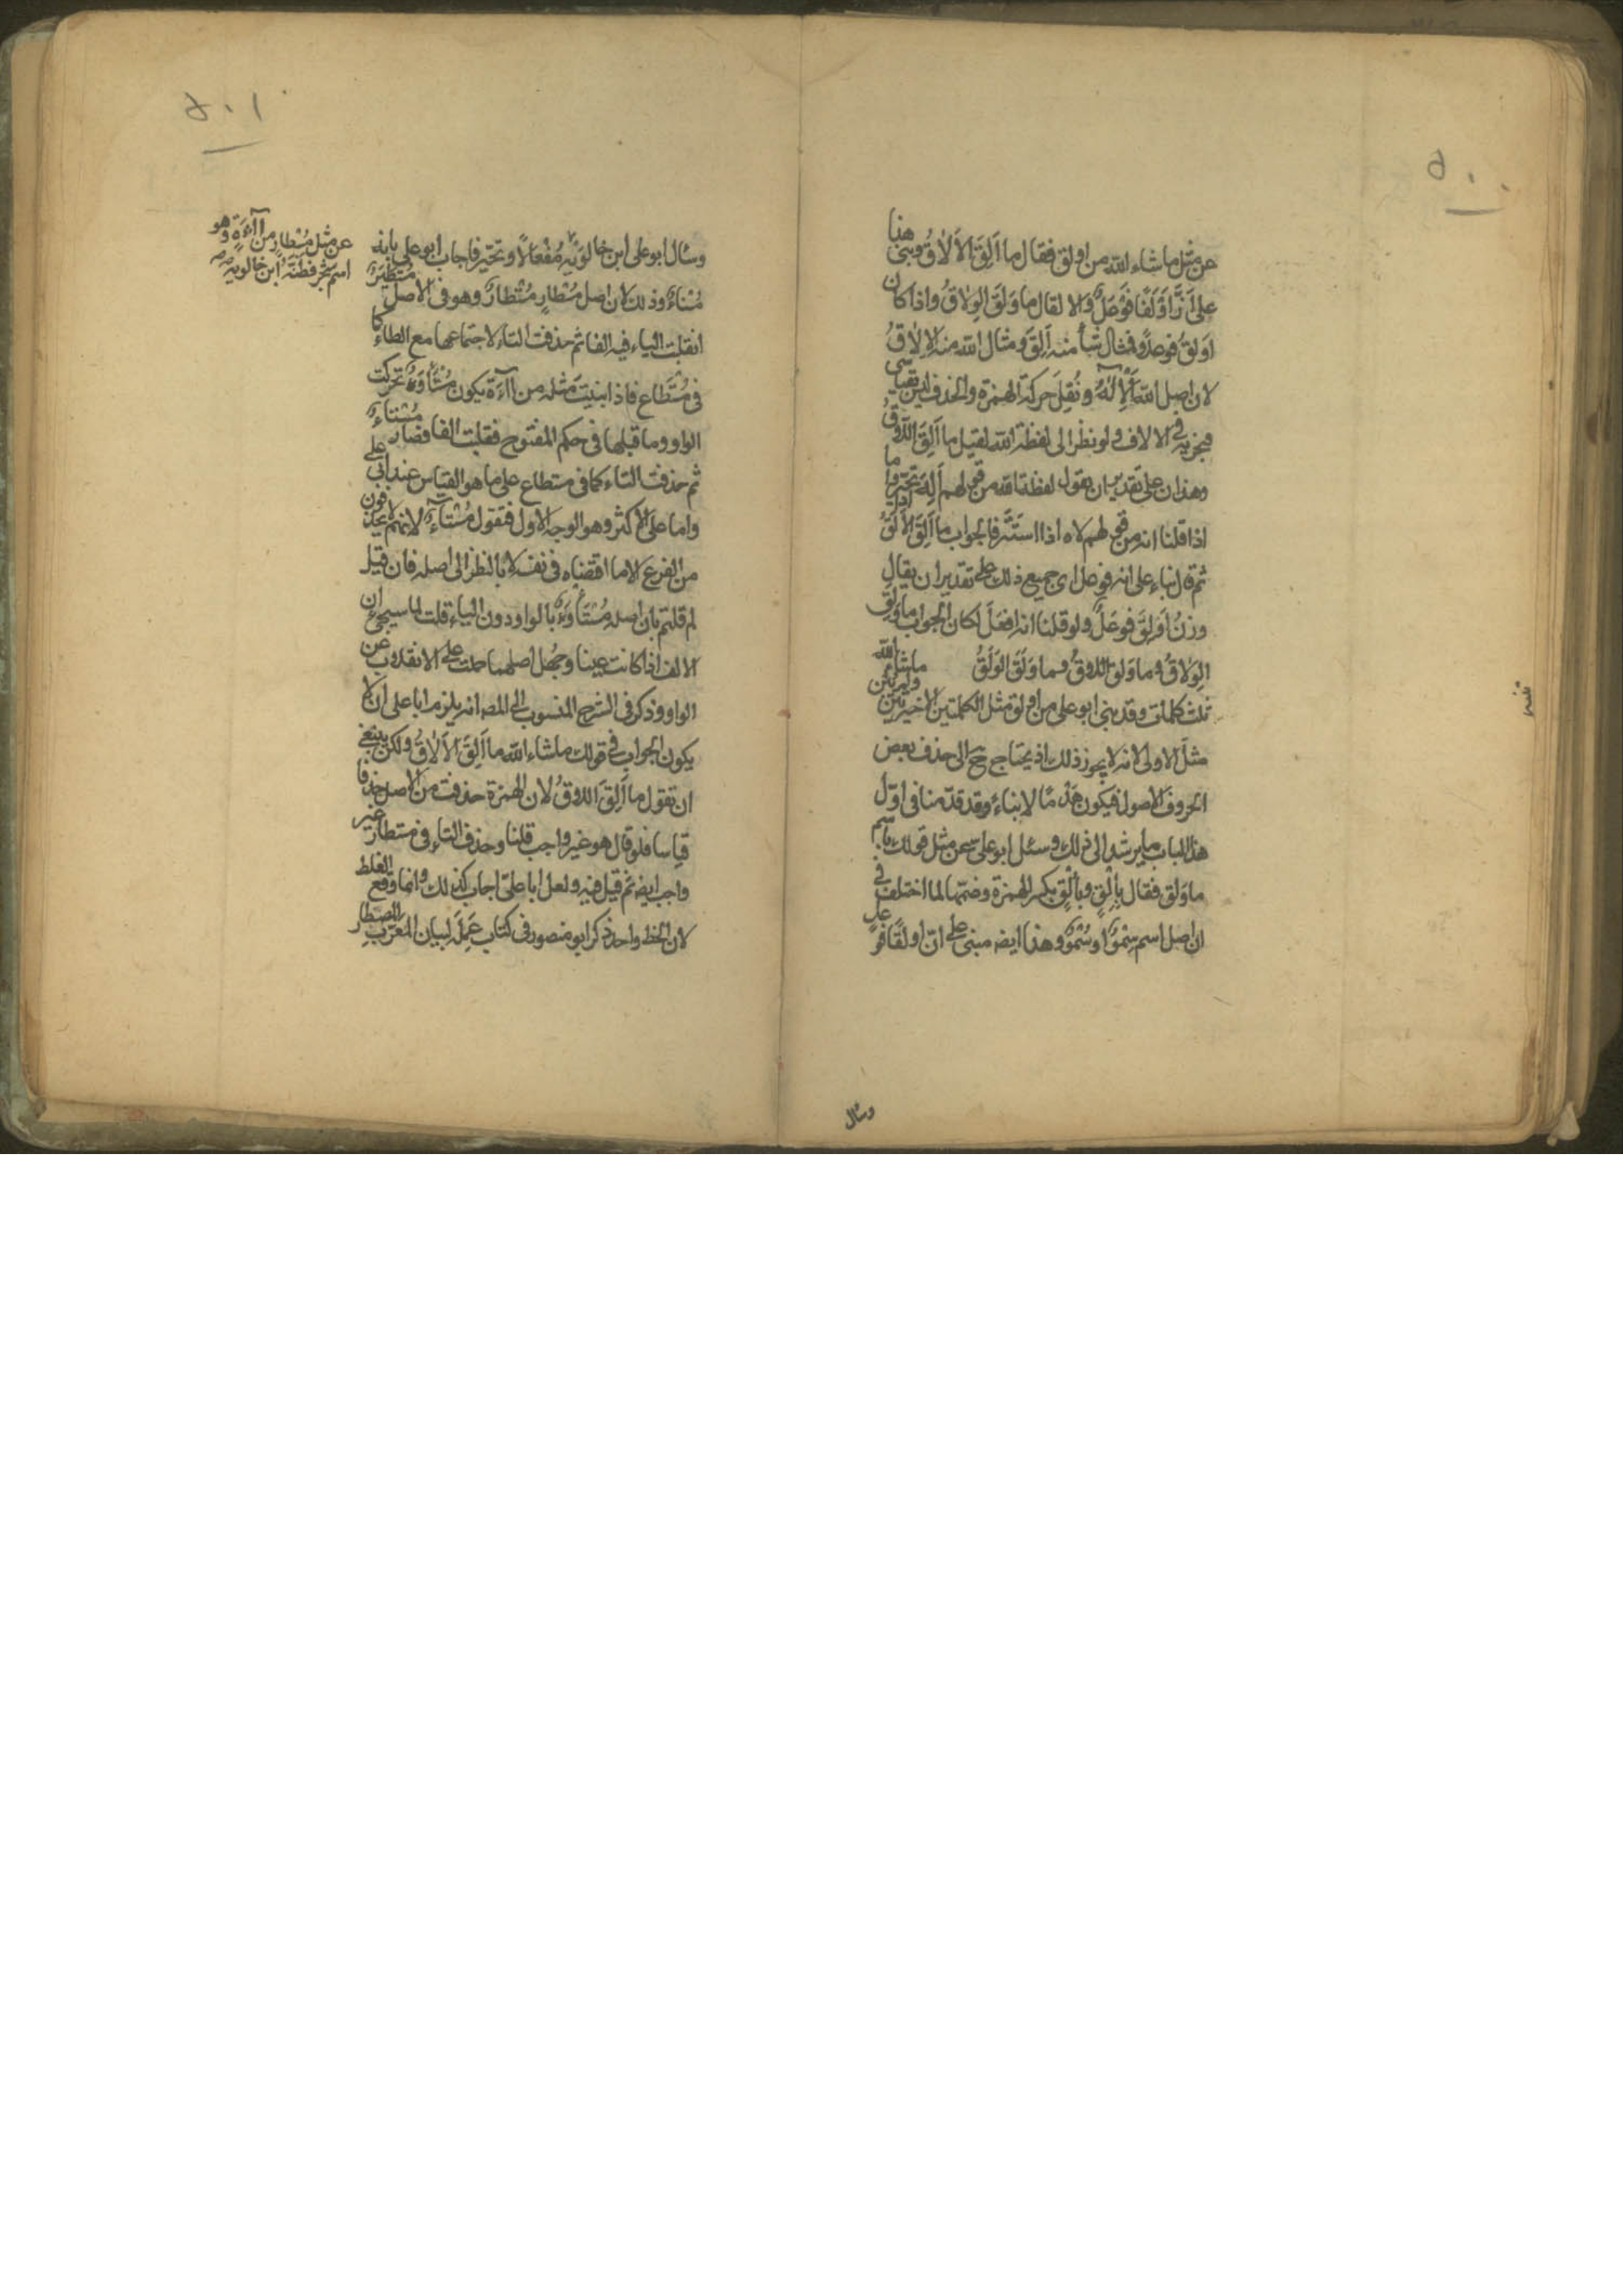 ٥٠٠
عن مثل ما شاء الله من اولق فقال ما اَلِقَ الاَلاقُ وبنى هذا
على اَنَّ اَوْلَقًا فَوْعَلٌ والا لقال ما وَلَقَ الوِلاقُ واذا كان
اَوْلَقُ فوعلاً فمثال شاء منه اَلِقَ ومثال الله منه الالاقُ
لان اصل الله اَلاِلٰهُ ونُقِلَ حركة الهمزة والحذف ليس بقياسى
فيجز به فى الالاق ولو نظر الى لفظة الله لقيل ما اَلِقَ اللاقُ
وهذان على تقدير ان يقول لفظة الله من قولهم اَلِهَ تحيّر واما
اذا قلنا انه من قولهم لاه اذا استتر فالجواب ما اَلِقَ الاَلَقُ
ثم قال بناء على انه فوعل اى جميع ذلك على تقدير ان يقال
وزنُ اَوْلَق فَوْعَلٌ ولو قلنا انه افعَل لكان الجواب ما وَلِقَ
الوِلاقُ وما وَلَق اللاقُ وما وَلَقَ الوَلَقُ ما شاء الله
ثلث كلمات وقد بنى ابو على من اولق مثل الكلمتين الاخيرتين ولم يبن
مثلَ الاولى لانه لا يجوز ذلك اذ يحتاج ح الى حذف بعض
الحروف الاصول فيكون هَدْمًا لا بناءً وقد قدّمنا فى اوّل
هذا الباب ما يرشد الى ذلك وسئل ابو على عن مثل قولك باسم
ما وَلق فقال بِاِلْقٍ وبِاُلْقٍ بكسر الهمزة وضمّها لما اختلف فى
ان اصل اسم سِمْوٌ او سُمْوٌ وهذا ايضه مبنى على انّ اولقًا فوعل
وسأل
٥٠١
وسأل ابو على ابن خالَوَيْهِ مُفْعَالاً وتحيّر فاجاب ابو على بانه
عن مثل مُسْطارٍ من اآءَةٍ وهو
اسم شجر فظنّه ابن خالويه صح
مُسْاءٌ وذلك لان اصل مُسْطارٍ مُسْتطارٌ وهو فى الاصل مُسْتَطْيَرٌ
انقلبت الياء فيه الفا ثم حذفت التاء لاجتماعها مع الطاء كما
فى مُسْتَطاع فاذا بنيتَ مثله من اآءَة يكون مُسْتَأْوَءٌ تحركت
الواو وما قبلها فى حكم المفتوح فقلبت الفا فصار مُسْتآءٌ
ثم حذفت التاء كما فى مستطاع على ما هو القياس عند ابى على
واما على الاكثر وهو الوجه الاول فتقول مُسْتَآءٌ لانهم لا يحذفون
من الفرع الا ما اقتضاه فى نفسه لا بالنظر الى اصله فان قيل
لم قلتم بان اصله مُسْتَأْوَءٌ بالواو دون الياء قلت لما سيجئ ان
الالف اذا كانت عينا وجُهل اصلها حملت على الانقلاب عن
الواو وذكر فى الشرح المنسوب الى المصه انه يلزم ابا على ان لا
يكون الجواب فى قولك ما شاء الله ما اَلِقَ الاَلاقُ ولكن ينبغى
ان تقول ما اَلِقَ اللاقُ لان الهمزة حذفت من الاصل حذفا
قياسا فلو قال هو غير واجب قلنا وحذف التاء فى مستطار غير
واجب ايضه ثم قيل فيه ولعل ابا علىّ اجاب كذلك وانما وقع الغلط
لان الخط واحد ذكر ابو منصور فى كتاب عَمِلَه لبيان المعرّب المصطار